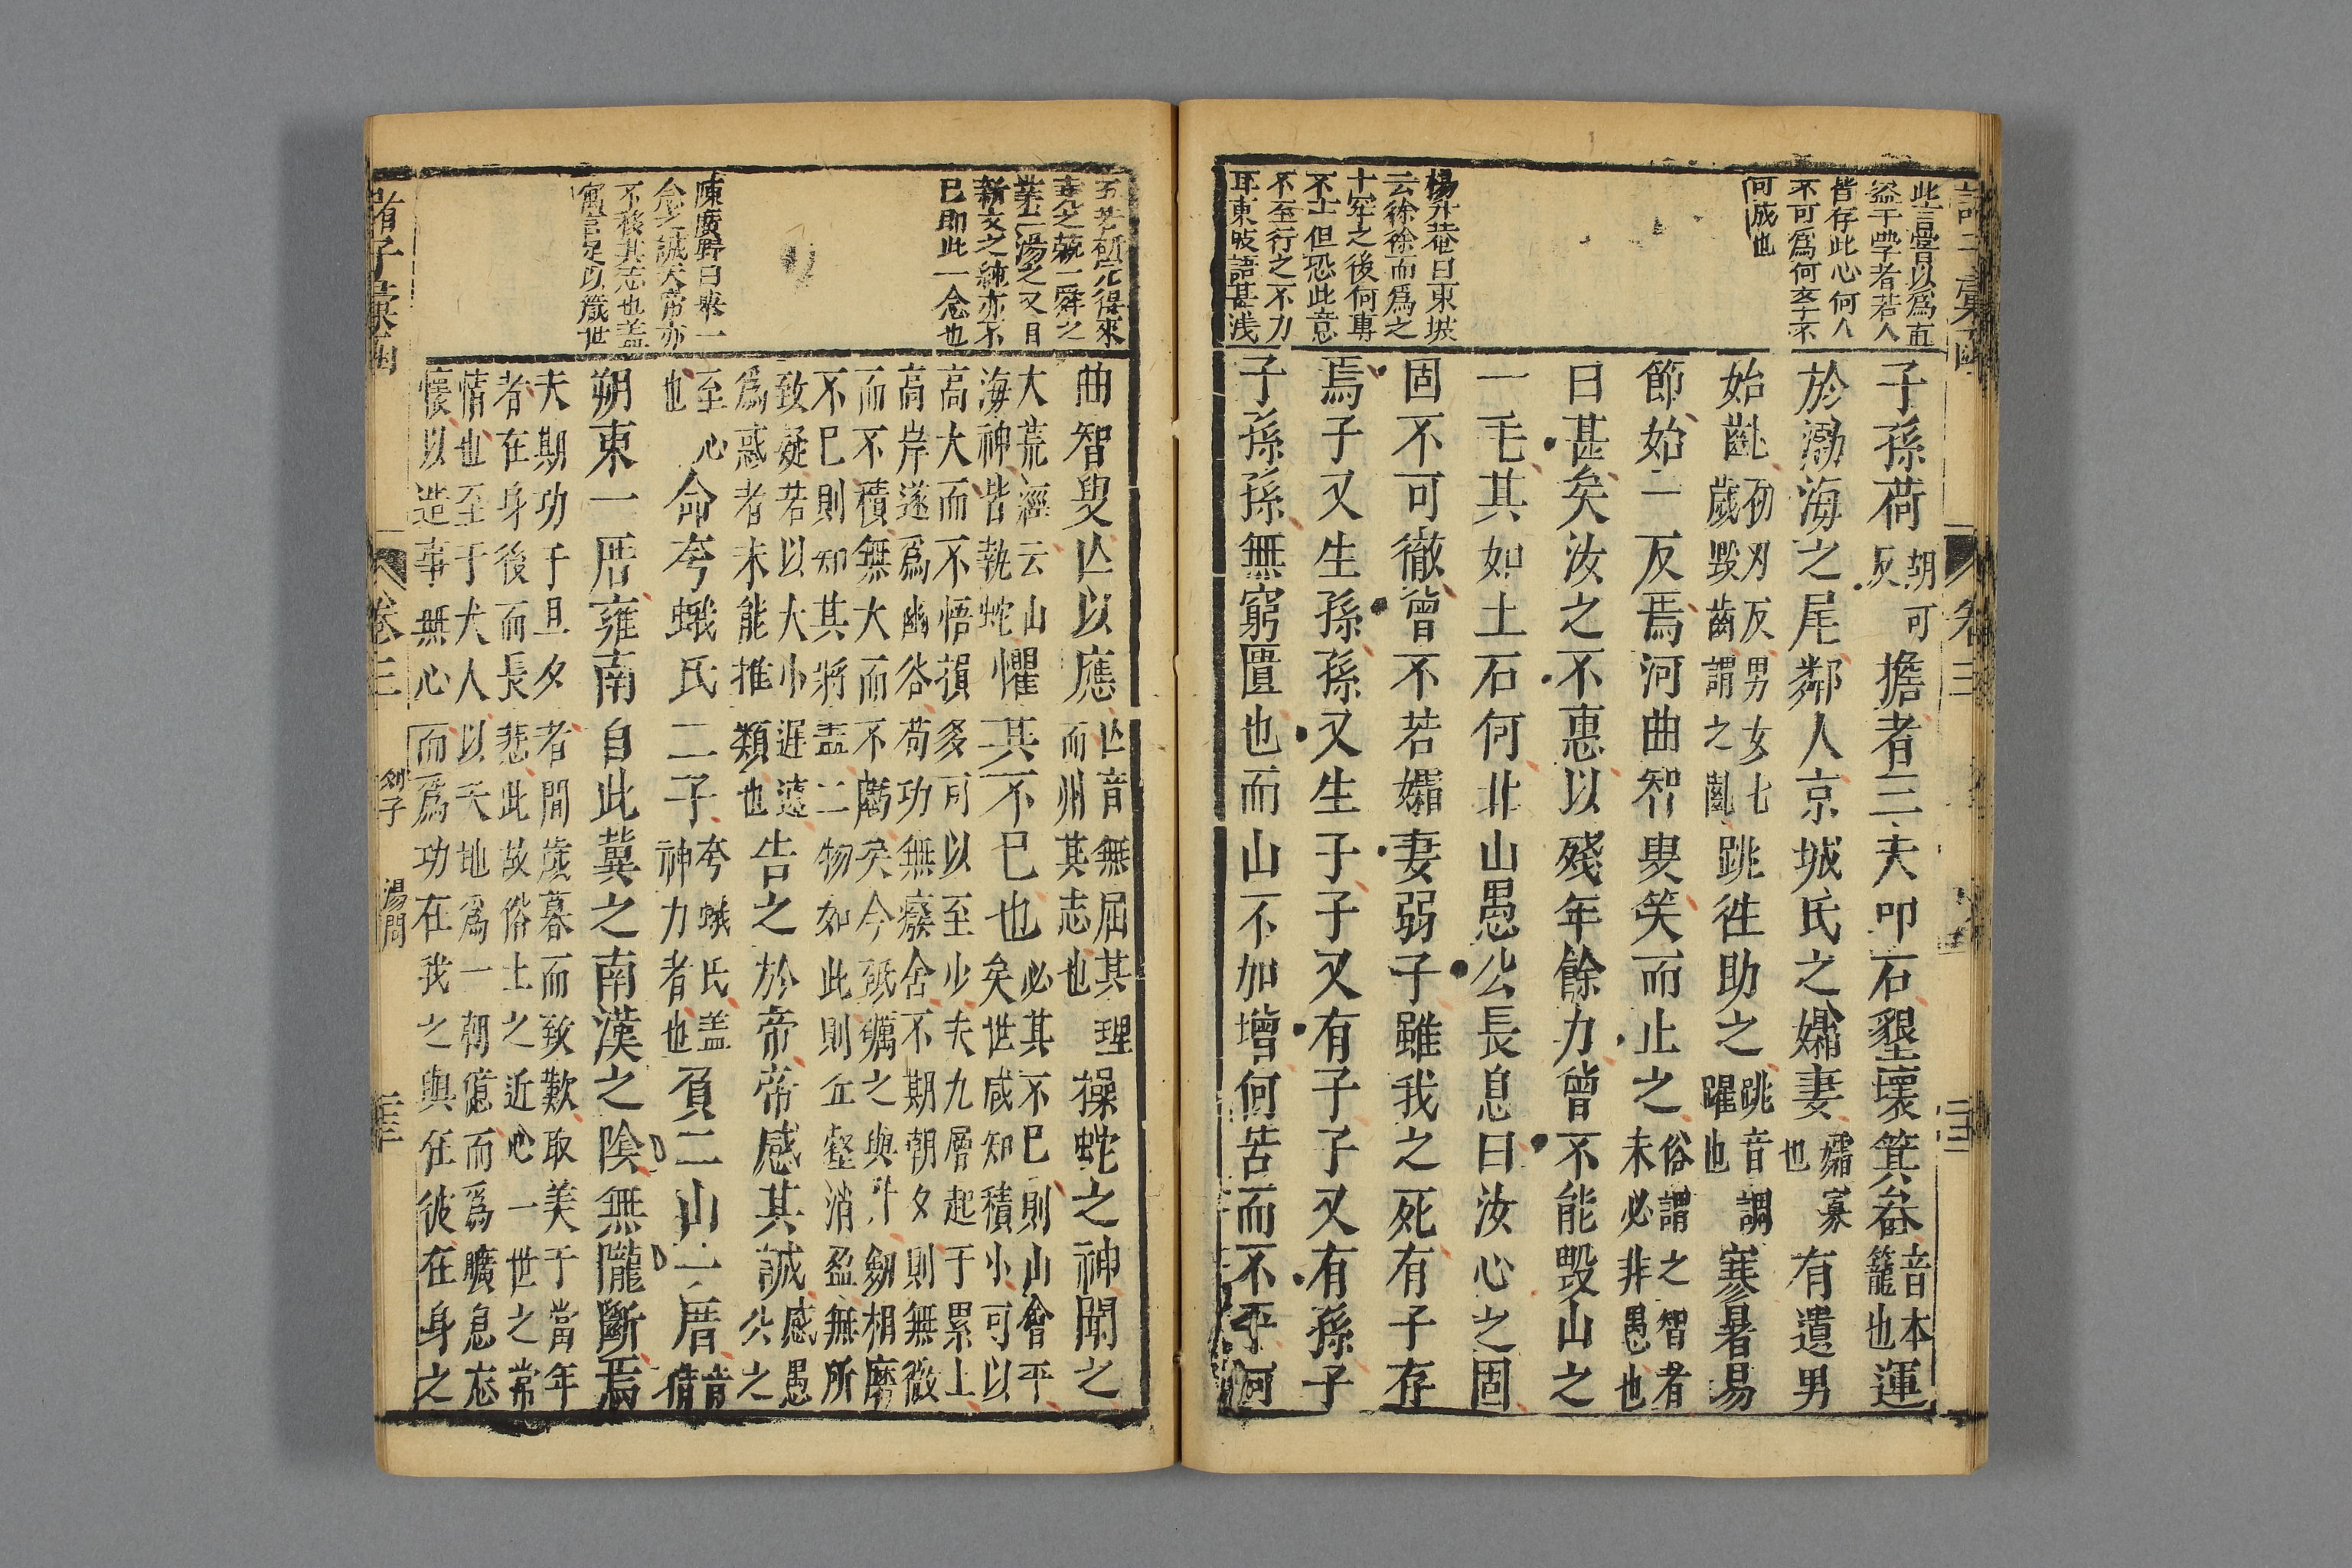 此言嘗以為直
益于學者若人
皆存此心何人
不可為何
可成也
楊升菴曰東坡
云徐徐而爲之
十年之後何專
不止但恐此意
不至行之不力
耳東坡語甚淺
卷三
子孫荷朝可反擔者三夫叩石墾壤箕畚音本籠也運
於渤海之尾鄰人京城氏之孀妻孀寡也有遺男
始齓初刃反男女七歲毀齒謂之齓跳往助之跳音調躍也寒暑易
節始一反焉河曲智叟笑而止之俗謂之智者未必非愚也
曰甚矣汝之不惠以殘年餘力曾不能毀山之
一毛其如土石何北山愚公長息曰汝心之固
固不可徹曾不若孀妻弱子雖我之死有子存
焉子又生孫孫又生子子又有子子又有孫子
子孫孫無窮匱也而山不加增何苦而不平河
五
新文之純亦不
已即此一念也
陳廣野曰舉一
念之誠天帝亦
不移其志也盖
寓言足以箴世
曲智叟亾以應亾音無屈其理而州其志也操蛇之神聞之
大荒經云山海神皆執蛇懼其不已也必其不已則山會平矣世咸知積小可以
高大而不悟損多可以至少夫九層起于累土
高岸遂爲幽谷苟功無癈舍不期朝夕則無微
而不積無大而不虧矣今砥礪之與斗劒相磨
不已則知其將盡二物如此則丘壑消盈無所
致疑若以大小遲速爲惑者未能推類也告之於帝帝感其誠感愚公之
至心也命夸蛾氏二子夸蛾氏盖神力者也負二山一厝音倩
朔東一厝雍南自此冀之南漢之陰無隴斷焉
夫期功于旦夕者聞歲暮而致歎取美于當年
者在身後而長悲此故俗士之近心一世之常
情也至于大人以天地爲一朝億而爲曠息忘
懷以造事無心而爲功在我之與在彼在身之
卷三
列子
湯問